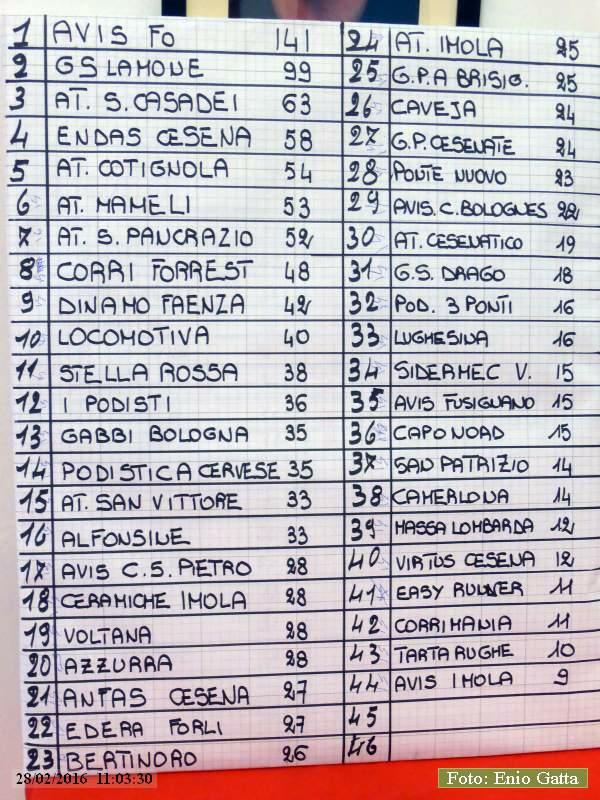 1 AVIS FO 141
2 GS LAMONE 99
3 AT. S. CASADEI 63
4 ENDAS CESENA 58
5 AT. COTIGNOLA 54
6 AT. MAMELI 53
7 AT. S. PANCRAZIO 52
8 CORRI FORREST 48
9 DINAMO FAENZA 42
10 LOCOMOTIVA 40
11 STELLA ROSSA 38
12 I PODISTI 36
13 GABBI BOLOGNA 35
14 PODISTICA CERVESE 35
15 AT. SAN VITTORE 33
16 ALFONSINE 33
17 AVIS C. S. PIETRO 28
18 CERAMICHE IMOLA 28
19 VOLTANA 28
20 AZZURRA 28
21 ANTAS CESENA 27
22 EDERA FORLI 27
23 BERTINORO 26
24 AT. IMOLA 25
25 G.P.A BRISIG. 25
26 CAVEJA 24
27 G.P. CESENATE 24
28 PONTE NUOVO 23
29 AVIS. C. BOLOGNES 22
30 AT. CESENATICO 19
31 G.S. DRAGO 18
32 POD. 3 PONTI 16
33 LUGHESINA 16
34 SIDERMEC V. 15
35 AVIS FUSIGNANO 15
36 CAPO NORD 15
37 SAN PATRIZIO 14
38 CAMERLONA 14
39 MASSA LOMBARDA 12
40 VIRTUS CESENA 12
41 EASY RUNNER 11
42 CORRIMANIA 11
43 TARTARUGHE 10
44 AVIS IMOLA 9
45
46
28/02/2016 11:03:30
Foto: Enio Gatta